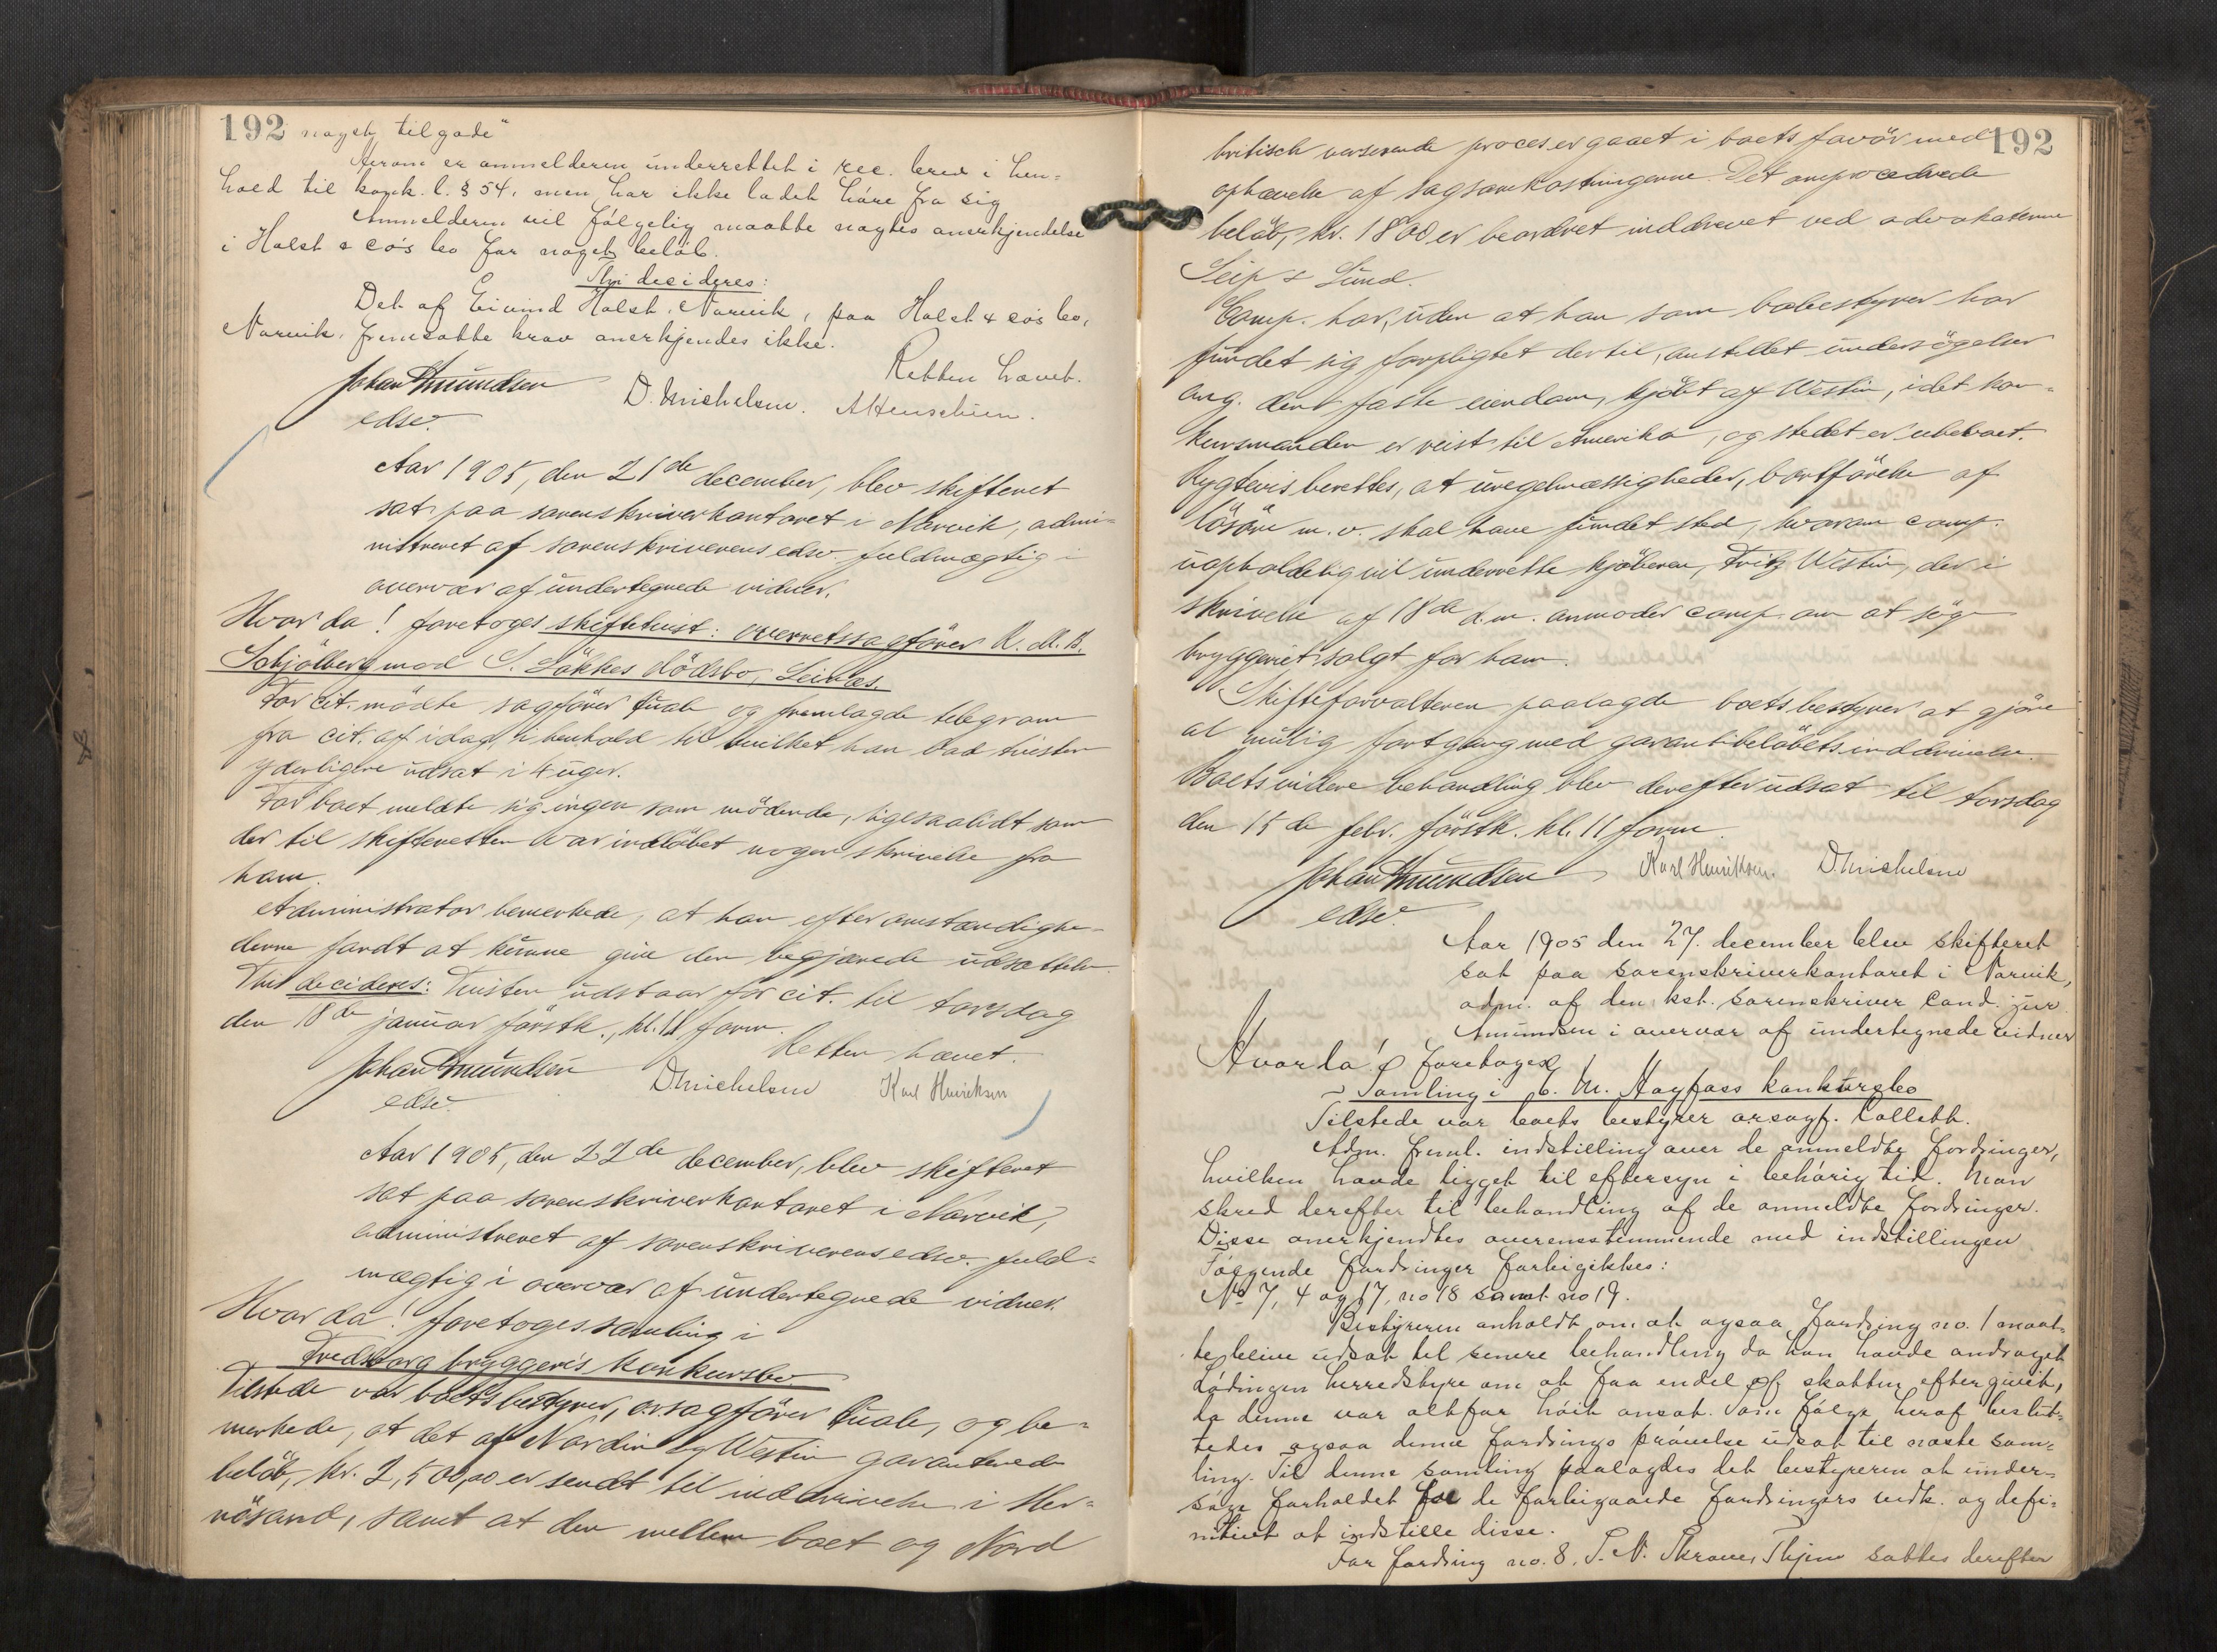 192 noget tilgode"
Herom er anmelderen underrettet i rec. brev i hen-
hold til konk. l. § 54, men har ikke ladet høre fra sig
Anmelderen vil følgelig maatte nægtes anerkjendelse
i Holst & co's bo for noget beløb.
Thi decideres:
Det af Eivind Holst, Narvik, paa Holst & co's bo,
Narvik, fremsatte krav anerkjendes ikke.
Retten hævet.
Johan Amundsen
edsv.
D. Michelsen.
Aar 1905, den 21de december, blev skifteret
sat paa sorenskriverkontoret i Narvik, admi-
nistreret af sorenskriverens edsv. fuldmægtig i
overvær af undertegnede vidner.
Hvor da! foretoges skiftetvist: overretssagfører K. M. B.
Schjölberg mod S. Løkkes dödsbo, Leinæs.
For cit. mødte sagfører Quale og fremlagde telegram
fra cit. af idag, i henhold til hvilket han bad tvisten
yderligere udsat i 4 uger.
For boet meldte sig ingen som mødende, ligesaalidt som
der til skifteretten var indløbet nogen skrivelse fra
ham.
Administrator bemerkede, at han efter omstændighe-
derne fandt at kunne give den begjærede udsættelse
Thi decideres: Tvisten udstaar for cit. til torsdag
den 18de januar förstk., kl. 11 form.
Retten hævet.
Johan Amundsen
edsv.
D Michelsen
Karl Henriksen
Aar 1905, den 22de december, blev skifteret
sat paa sorenskriverkontoret i Narvik,
administreret af sorenskriverens edsv. fuld-
mægtig i overvær af undertegnede vidner.
Hvor da! foretoges samling i
Fredsborg bryggeris konkursbo
Tilstede var boets bestyrer, o.r.sagfører Quale, og be-
merkede, at det af Nordin og Westin garanterede
beløb, kr. 2,500,00 er sendt til inddrivelse i Her-
nøsand, samt at den mellem boet og Nord
192
britisch verserende proces er gaaet i boets favør med
ophævelse af sagsomkostningerne. Det omprocederede
beløb, kr. 1800 er beordret inddrevet ved advokaterne
Leip & Lund.
Comp. har, uden at han som bobestyrer har
fundet sig forpligtet dertil, anstillet undersøgelser
ang. den faste eiendom, kjøbt af Westin, idet kon-
kursmanden er reist til Amerika, og stedet er ubeboet.
Rygtevis berettes, at uregelmæssigheder, bortførelse af
løsøre m. v. skal have fundet sted, hvorom comp.
uopholdelig vil underrette kjøberen, Fritz Westin, der i
skrivelse af 18de d.m. anmoder comp. om at søge
bryggeriet solgt for ham.
Skifteforvalteren paalagde boets bestyrer at gjøre
al mulig fortgang med garantibeløbets inddrivelse.
Boets videre behandling blev derefter udsat til torsdag
den 15de febr. förstk. kl. 11 form.
Johan Amundsen
edsv.
Karl Henriksen.
D. Michelsen
Aar 1905 den 27. december blev skifteret
sat paa sorenskriverkontoret i Narvik,
adm. af den kst. sorenskriver cand. jur.
Amundsen i overvær af undertegnede vidner
Hvor da! foretoges
Samling i C. M. Hayfass konkursbo
Tilstede var boets bestyrer o.r.sagf. Collett.
Adm. freml. indstilling over de anmeldte fordringer,
hvilken havde ligget til eftersyn i behørig tid. Man
skred derefter til behandling af de anmeldte fordringer.
Disse anerkjendtes overensstemmende med indstillingen
Følgende fordringer forbigikkes:
No 7, 4 og 17, no 18 samt no 19.
Bestyreren anholdt om at ogsaa fordring no. 1 maat-
te blive udsat til senere behandling da han havde andraget
Lødingen herredstyre om at faa endel af skatten eftergivet,
da denne var altfor høit ansat. Som følge heraf beslut-
tedes ogsaa denne fordrings prøvelse udsat til næste sam-
ling. Til denne samling paalagdes det bestyreren at under-
søge forholdet for de forbigaaede fordringers vedk. og defi-
nitivt at indstille disse.
For fordring no. 8. T. N. Skroves sattes derefter